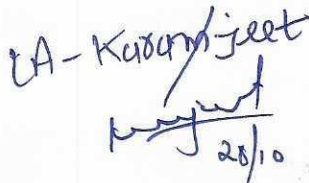 LA - Karamjeet
20/10